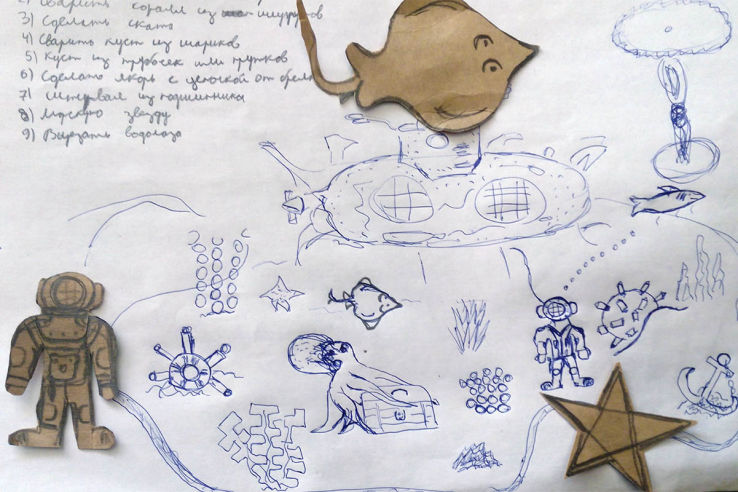 2) Сварить коралл из шурупов
3) Сделать ската
4) Сварить куст из шариков
5) Куст из трубосек или прутков
6) Сделать якорь с цепочкой от
7) Штурвал из подшипника
8) Морскую звезду
9) Вырезать водолаза